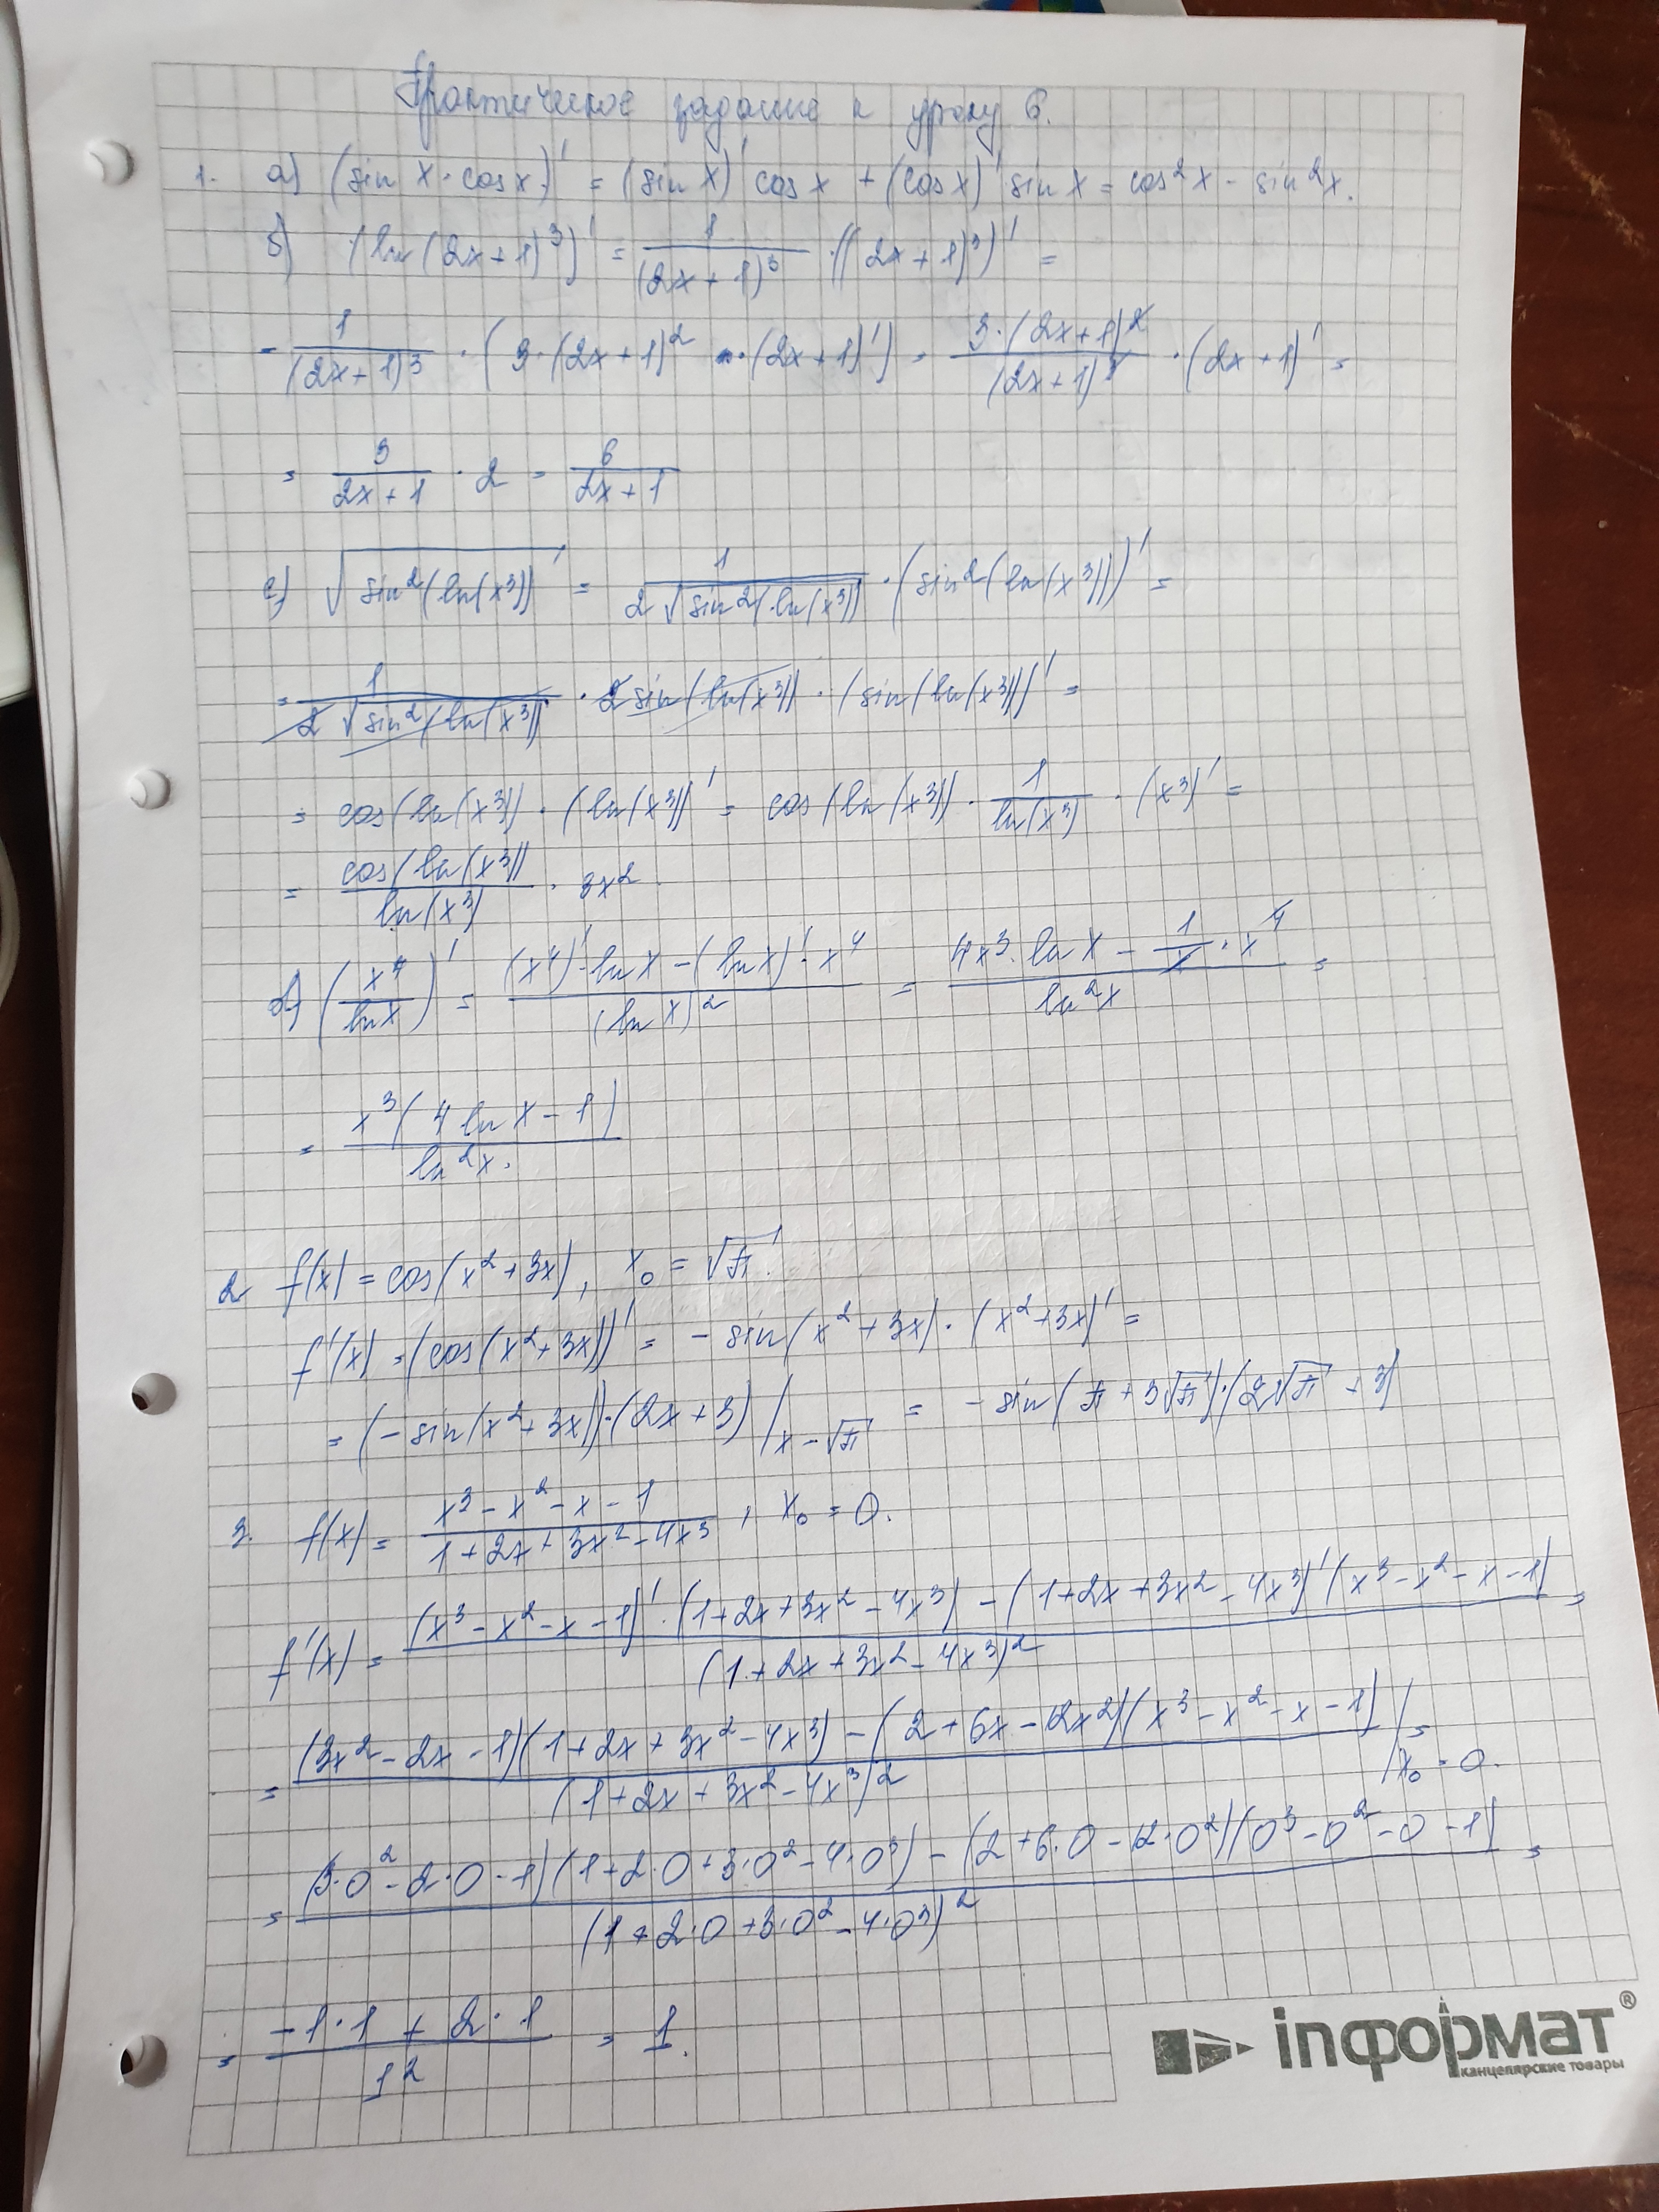 Практическое задание к уроку 6.
1. а) (sin x · cos x)' = (sin x)' cos x + (cos x)' sin x = cos²x - sin²x.
б) (ln(2x+1)³)' = 1/(2x+1)³ · ((2x+1)³)' =
= 1/(2x+1)³ · (3·(2x+1)² · (2x+1)') = 3·(2x+1)²/(2x+1)³ · (2x+1)' =
= 3/(2x+1) · 2 = 6/(2x+1)
с) √(sin²(ln(x³)))' = 1/(2√(sin²(ln(x³)))) · (sin²(ln(x³)))' =
= 1/(2√(sin²(ln(x³)))) · 2sin(ln(x³)) · (sin(ln(x³)))' =
= cos(ln(x³)) · (ln(x³))' = cos(ln(x³)) · 1/ln(x³) · (x³)' =
= cos(ln(x³))/ln(x³) · 3x²
(x⁴/ln x)' = ((x⁴)'·ln x - (ln x)'·x⁴)/(ln x)² = (4x³·ln x - 1/x · x⁴)/ln²x =
= x³(4 ln x - 1)/ln²x.
2 f(x) = cos(x²+3x), x₀ = √π.
f'(x) = (cos(x²+3x))' = - sin(x²+3x)·(x²+3x)' =
= (-sin(x²+3x))·(2x+3) |x=√π = - sin(π+3√π)·(2√π+3)
3. f(x) = (x³-x²-x-1)/(1+2x+3x²-4x³), x₀ = 0.
f'(x) = ((x³-x²-x-1)'·(1+2x+3x²-4x³) - (1+2x+3x²-4x³)'(x³-x²-x-1))/(1+2x+3x²-4x³)² =
= ((3x²-2x-1)(1+2x+3x²-4x³) - (2+6x-12x²)(x³-x²-x-1))/(1+2x+3x²-4x³)² |x₀=0. =
= ((3·0²-2·0-1)(1+2·0+3·0²-4·0³) - (2+6·0-12·0²)(0³-0²-0-1))/(1+2·0+3·0²-4·0³)² =
= (-1·1 + 2·1)/1² = 1.
inформат®
канцелярские товары